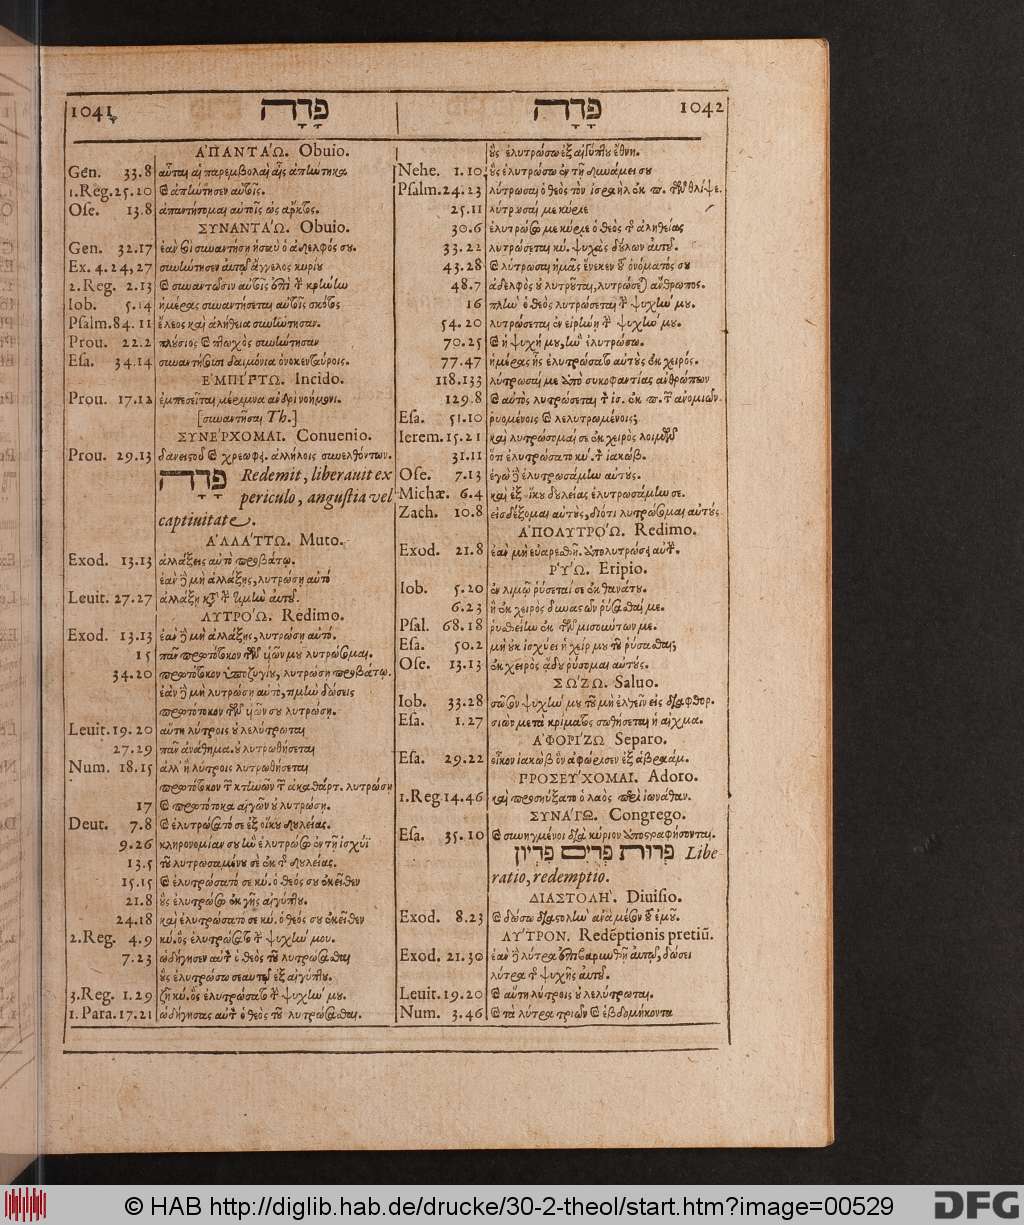 1041
פָּדָה
פָּדָה
1042
ἈΠΑΝΤΆΩ. Obuio.
Gen. 33.8 αὗται αἱ παρεμβολαὶ αἷς ἀπήντηκα
1.Reg.25.20 καὶ ἀπήντησεν αὐτοῖς.
Ose. 13.8 ἀπαντήσομαι αὐτοῖς ὡς ἄρκτος.
ΣΥΝΑΝΤΆΩ. Obuio.
Gen. 32.17 ἐάν σοι συναντήσῃ ἡσαῦ ὁ ἀδελφός σου.
Ex. 4.24,27 συνήντησεν αὐτῷ ἄγγελος κυρίου
2.Reg. 2.13 καὶ συναντῶσιν αὐτοῖς ἐπὶ τὴν κρήνην
Iob. 5.14 ἡμέρας συναντήσεται αὐτοῖς σκότος
Psalm.84.11 ἔλεος καὶ ἀλήθεια συνήντησαν.
Prou. 22.2 πλούσιος καὶ πτωχὸς συνήντησαν
Esa. 34.14 συναντήσουσι δαιμόνια ὀνοκενταύροις.
ἘΜΠΊΠΤΩ. Incido.
Prou. 17.12 ἐμπεσεῖται μέριμνα ἀνδρὶ νοήμονι.
[συναντῆσαι Th.]
ΣΥΝΈΡΧΟΜΑΙ. Conuenio.
Prou. 29.13 δανειστοῦ καὶ χρεωφ. ἀλλήλοις συνελθόντων.
פָּדָה Redemit, liberauit ex
periculo, angustia vel
captiuitate.
ἈΛΛΆΤΤΩ. Muto.
Exod. 13.13 ἀλλάξεις αὐτὸ προβάτῳ.
ἐὰν δὲ μὴ ἀλλάξῃς, λυτρώσῃ αὐτό
Leuit. 27.27 ἀλλάξῃ κατὰ τὴν τιμὴν αὐτοῦ.
ΛΥΤΡΌΩ. Redimo.
Exod. 13.13 ἐὰν δὲ μὴ ἀλλάξῃς, λυτρώσῃ αὐτό.
15 πᾶν πρωτότοκον τῶν υἱῶν μου λυτρώσομαι.
34.20 πρωτότοκον ὑποζυγίου, λυτρώσῃ προβάτῳ.
ἐὰν δὲ μὴ λυτρώσῃ αὐτό, τιμὴν δώσεις
πρωτότοκον τῶν υἱῶν σου λυτρώσῃ.
Leuit.19.20 αὕτη λύτροις οὐ λελύτρωται
27.29 πᾶν ἀνάθημα. οὐ λυτρωθήσεται
Num. 18.15 ἀλλ' ἢ λύτροις λυτρωθήσεται
πρωτότοκον τῶν κτηνῶν τῶν ἀκαθάρτ. λυτρώσῃ
17 καὶ πρωτότοκα αἰγῶν οὐ λυτρώσῃ.
Deut. 7.8 καὶ ἐλυτρώσατό σε ἐξ οἴκου δουλείας.
9.26 κληρονομίαν σου ἣν ἐλυτρώσω ἐν τῇ ἰσχύϊ
13.5 τοῦ λυτρωσαμένου σε ἐκ τῆς δουλείας.
15.15 καὶ ἐλυτρώσατό σε κύ. ὁ θεός σου ἐκεῖθεν
21.8 οὓς ἐλυτρώσω ἐκ γῆς αἰγύπτου.
24.18 καὶ ἐλυτρώσατό σε κύ. ὁ θεός σου ἐκεῖθεν
2.Reg. 4.9 κύ. ὃς ἐλυτρώσατο τὴν ψυχήν μου.
7.23 ὡδήγησεν αὐτὸν ὁ θεὸς τοῦ λυτρώσασθαι
οὓς ἐλυτρώσω σεαυτῷ ἐξ αἰγύπτου.
3.Reg. 1.29 ζῇ κύ. ὃς ἐλυτρώσατο τὴν ψυχήν μου.
1.Para.17.21 ὡδήγησας αὐτὸν ὁ θεὸς τοῦ λυτρώσασθαι.
οὓς ἐλυτρώσω ἐξ αἰγύπτου ἔθνη.
Nehe. 1.10 οὓς ἐλυτρώσω ἐν τῇ δυνάμει σου
Psalm.24.23 λύτρωσαι ὁ θεὸς τὸν ἰσραὴλ ἐκ π. τῶν θλίψε.
25.11 λύτρωσαί με κύριε
30.6 ἐλυτρώσω με κύριε ὁ θεὸς τῆς ἀληθείας
33.22 λυτρώσεται κύ. ψυχὰς δούλων αὐτοῦ.
43.28 καὶ λύτρωσαι ἡμᾶς ἕνεκεν τοῦ ὀνόματός σου
48.7 ἀδελφὸς οὐ λυτροῦται, λυτρώσεται ἄνθρωπος.
16 πλὴν ὁ θεὸς λυτρώσεται τὴν ψυχήν μου.
54.20 λυτρώσεται ἐν εἰρήνῃ τὴν ψυχήν μου.
70.25 καὶ ἡ ψυχή μου, ἣν ἐλυτρώσω.
77.47 ἡμέρας ἧς ἐλυτρώσατο αὐτοὺς ἐκ χειρός.
118.133 λύτρωσαί με ἀπὸ συκοφαντίας ἀνθρώπων
129.8 καὶ αὐτὸς λυτρώσεται τὸν ἰσ. ἐκ π. τῶν ἀνομιῶν
Esa. 51.10 ῥυομένοις καὶ λελυτρωμένοις;
Ierem.15.21 καὶ λυτρώσομαί σε ἐκ χειρὸς λοιμῶν
31.11 ὅτι ἐλυτρώσατο κύ. τὸν ἰακώβ.
Ose. 7.13 ἐγὼ δὲ ἐλυτρωσάμην αὐτούς.
Michæ. 6.4 καὶ ἐξ οἴκου δουλείας ἐλυτρωσάμην σε.
Zach. 10.8 εἰσδέξομαι αὐτούς, διότι λυτρώσομαι αὐτούς
ἈΠΟΛΥΤΡΌΩ. Redimo.
Exod. 21.8 ἐὰν μὴ εὐαρεστῇ. ἀπολυτρώσει αὐτήν.
ῬΎΩ. Eripio.
Iob. 5.20 ἐν λιμῷ ῥύσεταί σε ἐκ θανάτου.
6.23 ἢ ἐκ χειρὸς δυναστῶν ῥύσασθαί με.
Psal. 68.18 ῥυσθείην ἐκ τῶν μισούντων με.
Esa. 50.2 μὴ οὐκ ἰσχύει ἡ χείρ μου τοῦ ῥύσασθαι;
Ose. 13.13 ἐκ χειρὸς ᾅδου ῥύσομαι αὐτούς.
ΣΏΖΩ. Saluo.
Iob. 33.28 σῶσον ψυχήν μου τοῦ μὴ ἐλθεῖν εἰς διαφθορ.
Esa. 1.27 σιὼν μετὰ κρίματος σωθήσεται ἡ αἰχμα.
ἈΦΟΡΊΖΩ Separo.
Esa. 29.22 οἶκον ἰακὼβ ὃν ἀφώρισεν ἐξ ἁβραάμ.
ΠΡΟΣΕΎΧΟΜΑΙ. Adoro.
1.Reg.14.46 καὶ προσηύξατο ὁ λαὸς περὶ ἰωνάθαν.
ΣΥΝΆΓΩ. Congrego.
Esa. 35.10 καὶ συνηγμένοι διὰ κύριον ἀποστραφήσονται.
פְּדוּת פְּדֻיִם פִּדְיוֹן Libe-
ratio, redemptio.
ΔΙΑΣΤΟΛΉ. Diuisio.
Exod. 8.23 καὶ δώσω διαστολὴν ἀνὰ μέσον τοῦ ἐμοῦ.
ΛΎΤΡΟΝ. Redēptionis pretiū.
Exod. 21.30 ἐὰν δὲ λύτρα ἐπιβληθῇ αὐτῷ, δώσει
λύτρα τῆς ψυχῆς αὐτοῦ.
Leuit.19.20 καὶ αὕτη λύτροις οὐ λελύτρωται.
Num. 3.46 καὶ τὰ λύτρα τριῶν καὶ ἑβδομήκοντα
© HAB http://diglib.hab.de/drucke/30-2-theol/start.htm?image=00529
DFG